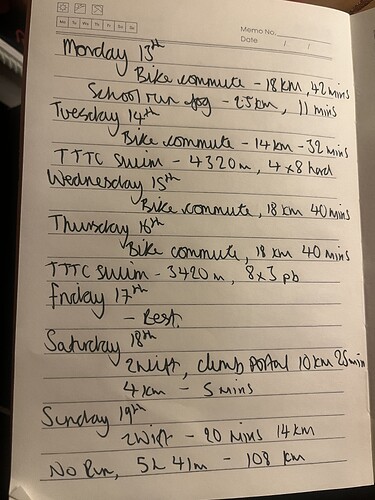 Memo No.
Mo Tu We Th Fr Sa Su
Date / /
Monday 13th
Bike commute - 18 km, 42 mins
School run jog - 2.5km, 11 mins
Tuesday 14th
Bike commute - 14 km - 32 mins
TTTC swim - 4320m, 4x8 hard
Wednesday 15th
Bike commute, 18 km 40 mins
Thursday 16th
Bike commute, 18 km 40 mins
TTTC swim - 3420m, 8x3 pb
Friday 17th
- Rest.
Saturday 18th
Zwift, climb portal 10km 25min
4km - 5 mins
Sunday 19th
Zwift - 20 mins 14 km
No Run, 5h 41m - 108 km